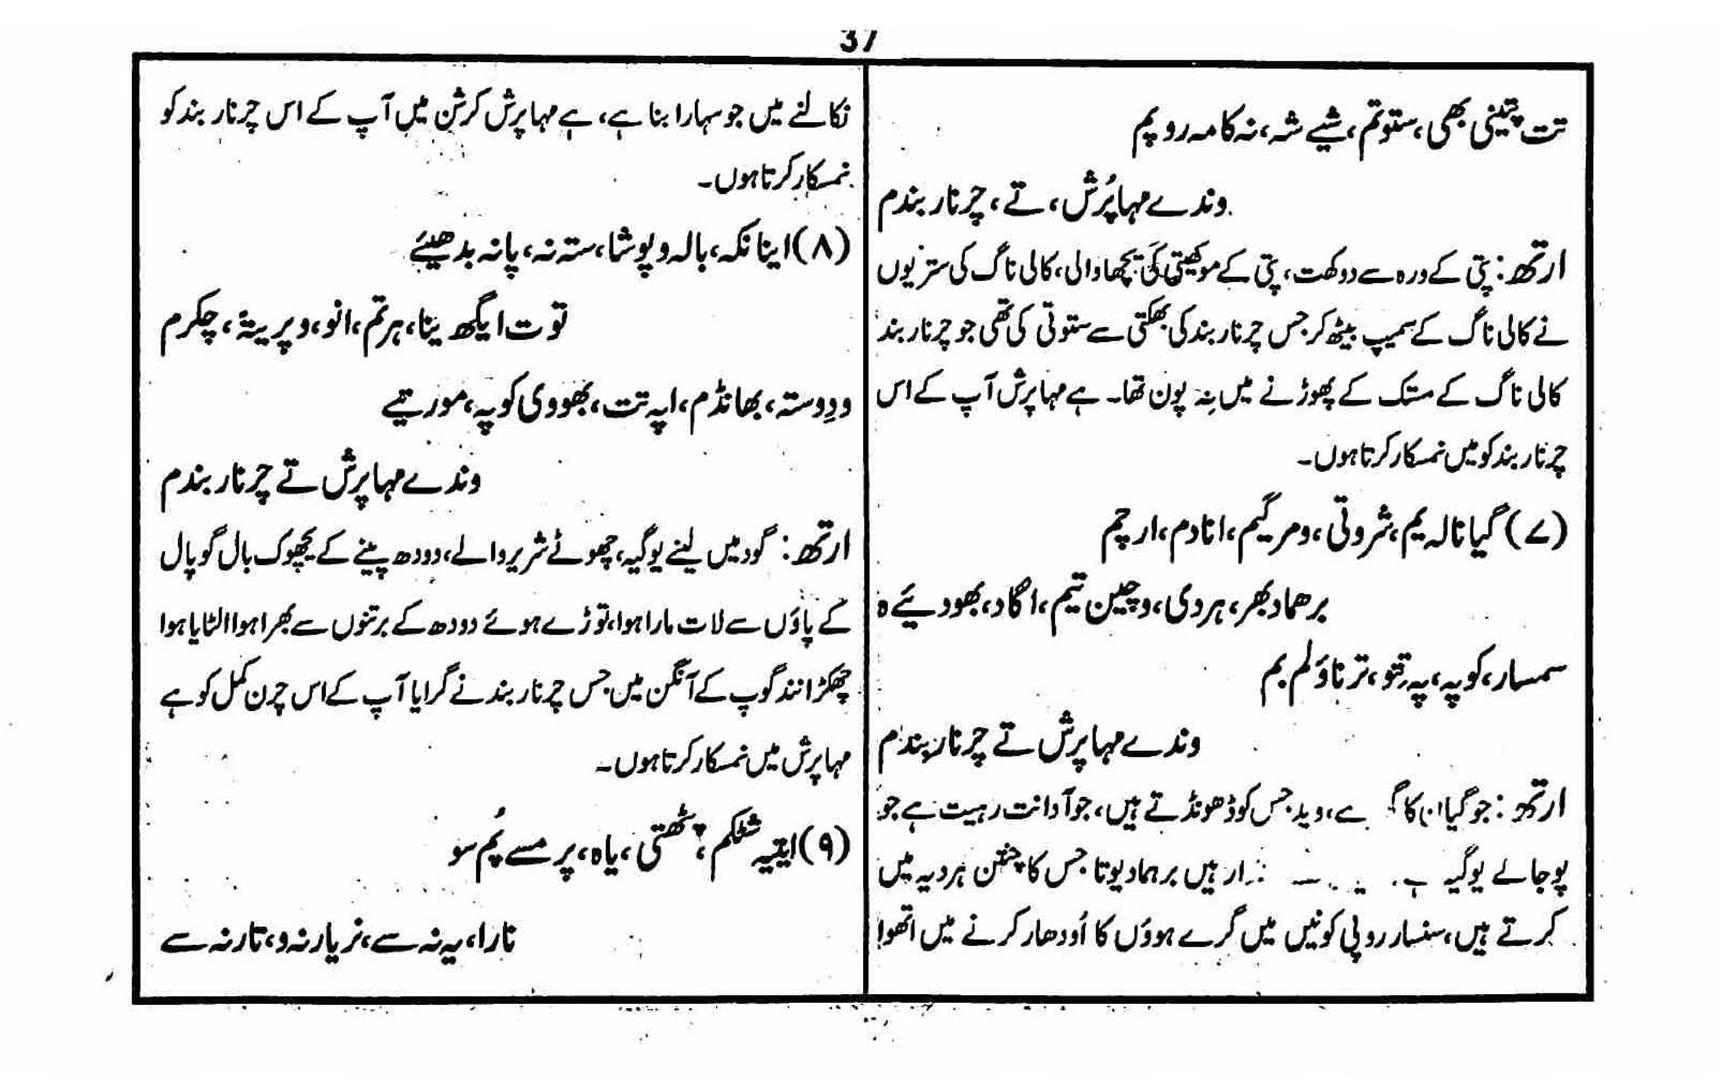 37
تت پتینی بھی، ستوتم، شیے شہ، نہ کامہ روپم
وندے مہاپُرش، تے، چرنار بندم
ارتھ: پتی کے ورہ سے دوکھت، پتی کے موکھیتی کی یچھا والی، کالی ناگ کی ستریوں
نے کالی ناگ کے سمیپ بیٹھ کر جس چرنار بند کی بھکتی سے ستوتی کی تھی جو چرنار بند
کالی ناگ کے متک کے پھوڑنے میں نِہ پون تھا۔ ہے مہاپرش آپ کے اس
چرنار بند کو میں نمسکار کرتا ہوں۔
(۷) گیانالہ یم، شروتی، ومرگیم، انادم، ارچم
برھمادبھر، ہردی، وچین تیم، اگاد، بھودیئے ہ
سمسار، کوپہ، پہ تِتو، ترناؤلم بم
وندے مہاپرش تے چرنار بندم
ارتھ: جو گیان کا ہے، وید جس کو ڈھونڈتے ہیں، جو آدانت رہیت ہے جو
پوجالے یوگیہ ہیں برھما دیوتا جس کا چنتن ہردیہ میں
کرتے ہیں، سنسار روپی کونیں میں گرے ہوؤں کا اُودھار کرنے میں اتھوا
نکالنے میں جو سہارا بنا ہے، ہے مہاپرش کرشن میں آپ کے اس چرنار بند کو
نمسکار کرتا ہوں۔
(۸) اینانکہ، بالہ وپوشا، ستہ نہ، پانہ بدھیئے
توت ایگھ ینا، ہرتم، انو، وپریۂ، چکرم
ودِوستہ، بھانڈم، اپہ تت، بھووی کوپہ، مورتیے
وندے مہاپرش تے چرنار بندم
ارتھ: گود میں لینے یوگیہ، چھوٹے شریر والے، دودھ پینے کے یچھوک بال گوپال
کے پاؤں سے لات مارا ہوا، توڑے ہوئے دودھ کے برتنوں سے بھرا ہوا الٹایا ہوا
چھکڑا نند گوپ کے آنگن میں جس چرنار بند نے گرایا آپ کے اس چرن کمل کو ہے
مہاپرش میں نمسکار کرتا ہوں۔
(۹) ایتیہ شٹکم، پٹھتی، یاہ، پرمسے پُم سو
نارا، یہ نہ سے، نریارنہ و، تارنہ سے